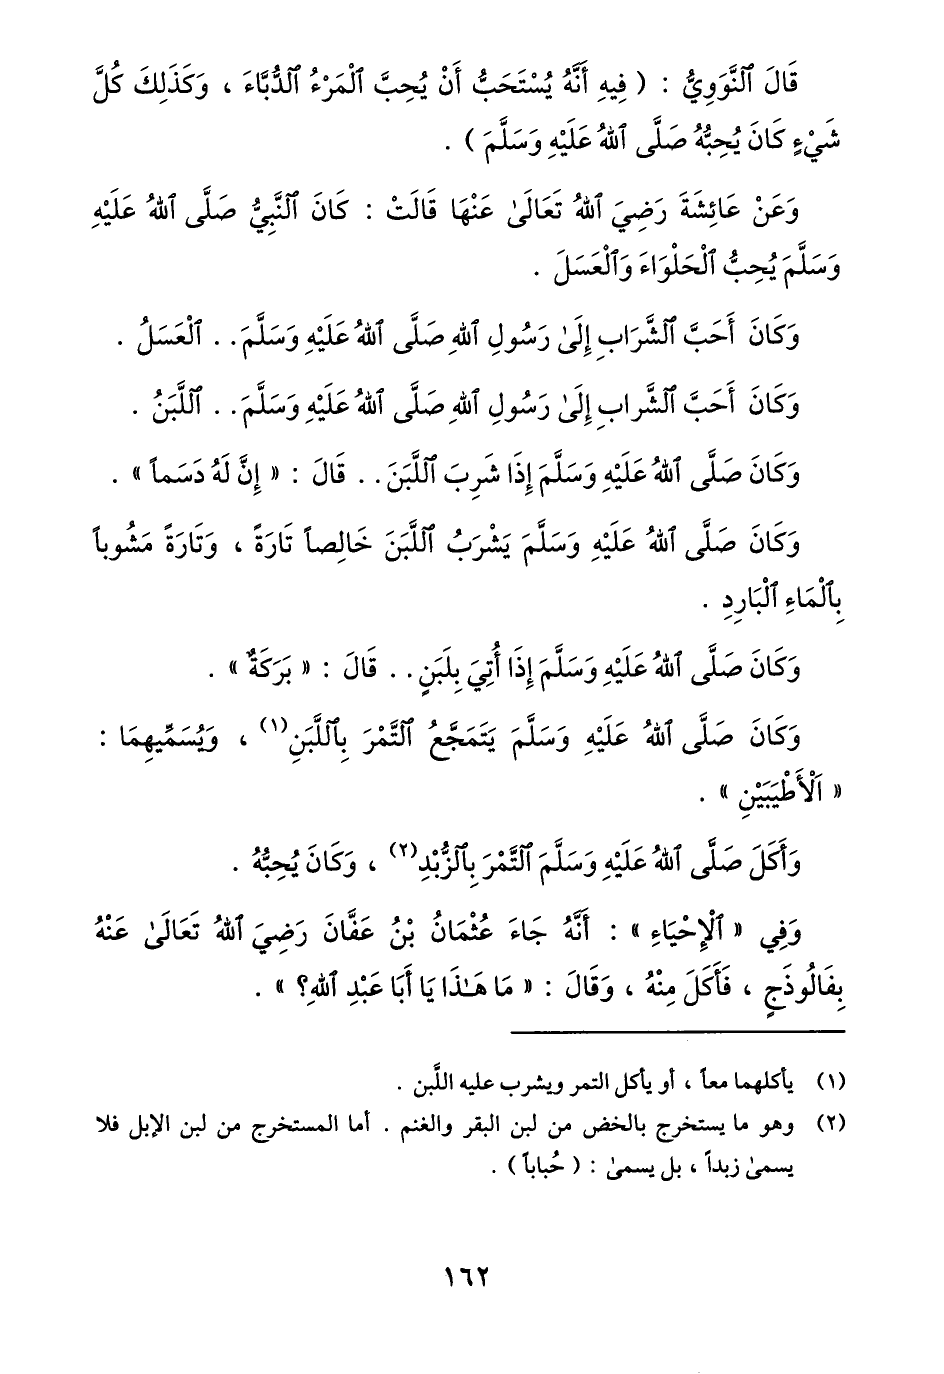 قَالَ ٱلنَّوَوِيُّ : ( فِيهِ أَنَّهُ يُسْتَحَبُّ أَنْ يُحِبَّ ٱلْمَرْءُ ٱلدُّبَّاءَ ، وَكَذَلِكَ كُلَّ
شَيْءٍ كَانَ يُحِبُّهُ صَلَّى ٱللهُ عَلَيْهِ وَسَلَّمَ ) .
وَعَنْ عَائِشَةَ رَضِيَ ٱللهُ تَعَالَىٰ عَنْهَا قَالَتْ : كَانَ ٱلنَّبِيُّ صَلَّى ٱللهُ عَلَيْهِ
وَسَلَّمَ يُحِبُّ ٱلْحَلْوَاءَ وَٱلْعَسَلَ .
وَكَانَ أَحَبَّ ٱلشَّرَابِ إِلَىٰ رَسُولِ ٱللهِ صَلَّى ٱللهُ عَلَيْهِ وَسَلَّمَ . . ٱلْعَسَلُ .
وَكَانَ أَحَبَّ ٱلشَّرابِ إِلَىٰ رَسُولِ ٱللهِ صَلَّى ٱللهُ عَلَيْهِ وَسَلَّمَ . . ٱللَّبَنُ .
وَكَانَ صَلَّى ٱللهُ عَلَيْهِ وَسَلَّمَ إِذَا شَرِبَ ٱللَّبَنَ . . قَالَ : « إِنَّ لَهُ دَسَماً » .
وَكَانَ صَلَّى ٱللهُ عَلَيْهِ وَسَلَّمَ يَشْرَبُ ٱللَّبَنَ خَالِصاً تَارَةً ، وَتَارَةً مَشُوباً
بِٱلْمَاءِ ٱلْبَارِدِ .
وَكَانَ صَلَّى ٱللهُ عَلَيْهِ وَسَلَّمَ إِذَا أُتِيَ بِلَبَنٍ . . قَالَ : « بَرَكَةٌ » .
وَكَانَ صَلَّى ٱللهُ عَلَيْهِ وَسَلَّمَ يَتَمَجَّعُ ٱلتَّمْرَ بِٱللَّبَنِ(١) ، وَيُسَمِّيهِمَا :
« ٱَلْأَطْيَبَيْنِ » .
وَأَكَلَ صَلَّى ٱللهُ عَلَيْهِ وَسَلَّمَ ٱلتَّمْرَ بِٱلزُّبْدِ(٢) ، وَكَانَ يُحِبُّهُ .
وَفِي « ٱلْإِحْيَاءِ » : أَنَّهُ جَاءَ عُثْمَانُ بْنُ عَفَّانَ رَضِيَ ٱللهُ تَعَالَىٰ عَنْهُ
بِفَالُوذَجٍ ، فَأَكَلَ مِنْهُ ، وَقَالَ : « مَا هَـٰذَا يَا أَبَا عَبْدِ ٱللهِ؟ » .
(١) يأكلهما معاً ، أو يأكل التمر ويشرب عليه اللَّبن .
(٢) وهو ما يستخرج بالخض من لبن البقر والغنم . أما المستخرج من لبن الإبل فلا
يسمىٰ زبداً ، بل يسمىٰ : ( حُباباً ) .
١٦٢